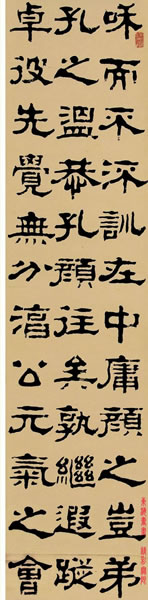 咊而不流訓在中庸顏之豈弟
孔之溫恭孔顏往矣孰繼遐蹤
卓彼先覺無公淳公元氣之會